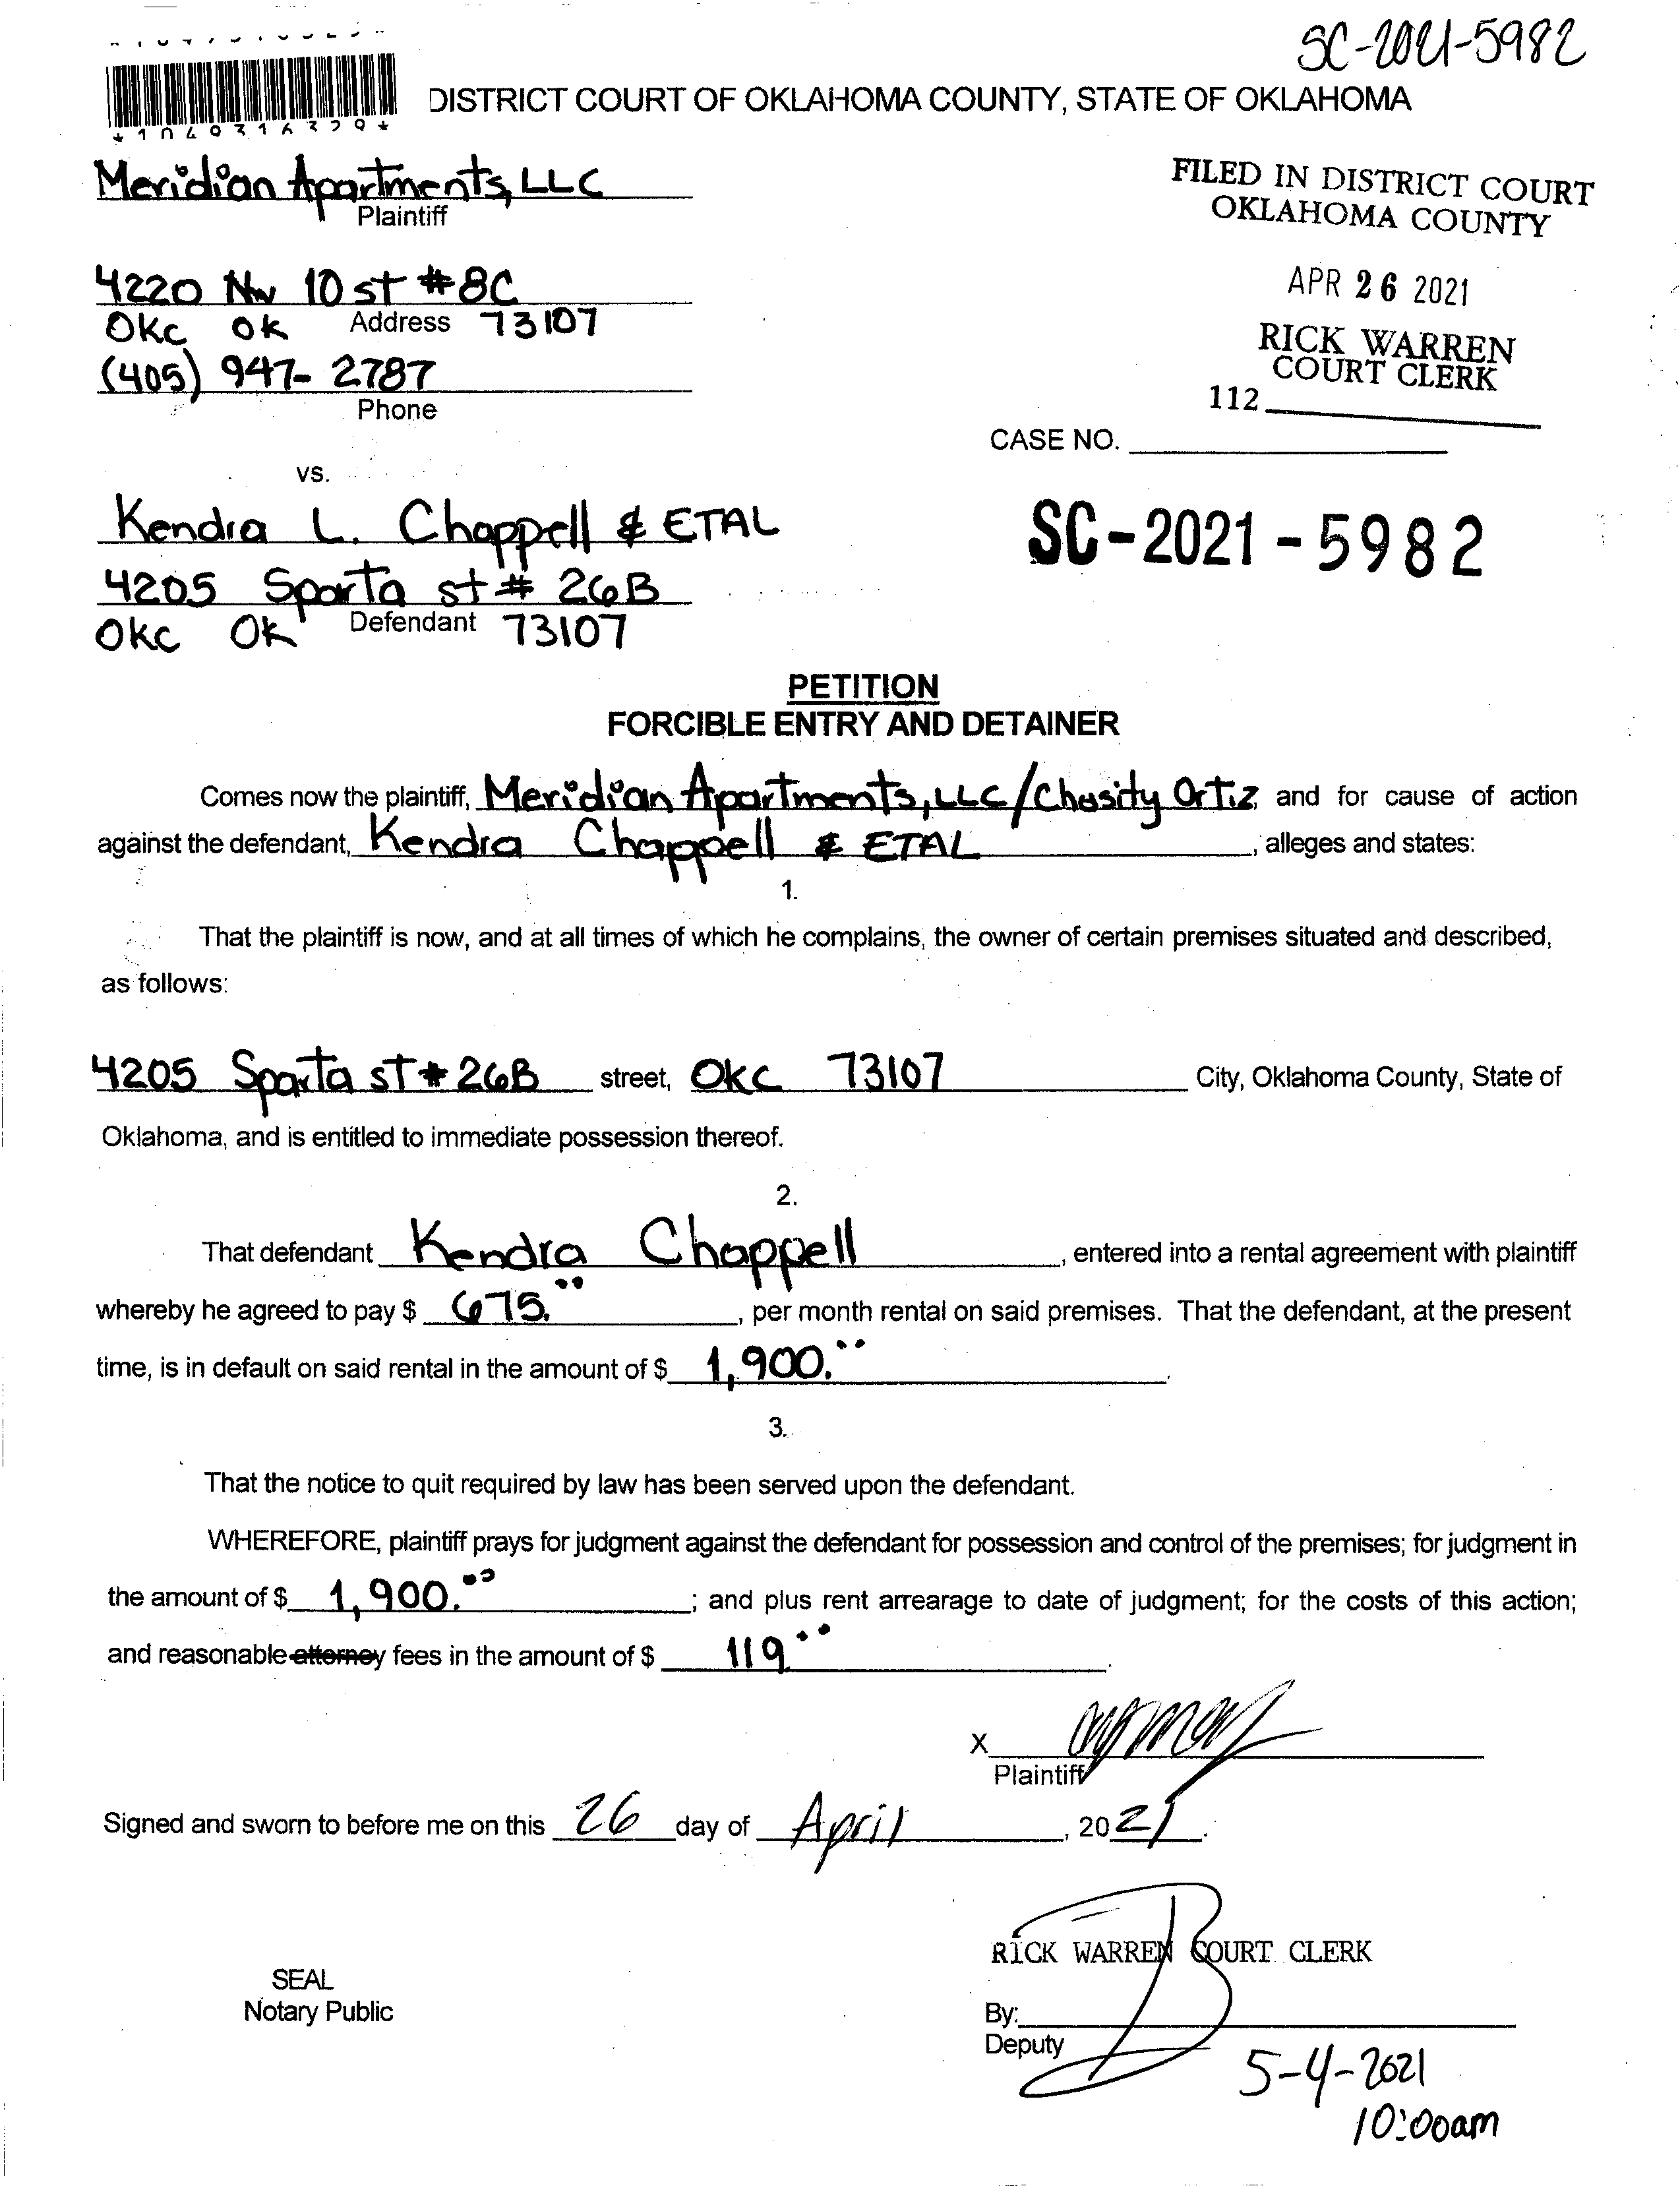 SC-2021-5982
DISTRICT COURT OF OKLAHOMA COUNTY, STATE OF OKLAHOMA
Meridian Apartments, LLC
Plaintiff
FILED IN DISTRICT COURT
OKLAHOMA COUNTY
4220 NW 10 st #8C
APR 26 2021
OKC OK Address 73107
RICK WARREN
COURT CLERK
(405) 947-2787
Phone
112
CASE NO.
vs.
Kendra L. Chappell & ETAL
SC-2021-5982
4205 Sparta st # 26B
OKC OK Defendant 73107
PETITION
FORCIBLE ENTRY AND DETAINER
Comes now the plaintiff, Meridian Apartments, LLC/Chasity Ortiz, and for cause of action
against the defendant, Kendra Chappell & ETAL, alleges and states:
1.
That the plaintiff is now, and at all times of which he complains, the owner of certain premises situated and described,
as follows:
4205 Sparta ST # 26B street, OKC 73107 City, Oklahoma County, State of
Oklahoma, and is entitled to immediate possession thereof.
2.
That defendant Kendra Chappell, entered into a rental agreement with plaintiff
whereby he agreed to pay $ 675.00, per month rental on said premises. That the defendant, at the present
time, is in default on said rental in the amount of $ 1,900.00.
3.
That the notice to quit required by law has been served upon the defendant.
WHEREFORE, plaintiff prays for judgment against the defendant for possession and control of the premises; for judgment in
the amount of $ 1,900.00; and plus rent arrearage to date of judgment; for the costs of this action;
and reasonable attorney fees in the amount of $ 119.00.
X
Plaintiff
Signed and sworn to before me on this 26 day of April, 2021.
RICK WARREN COURT CLERK
SEAL
Notary Public
By:
Deputy
5-4-2021
10:00am